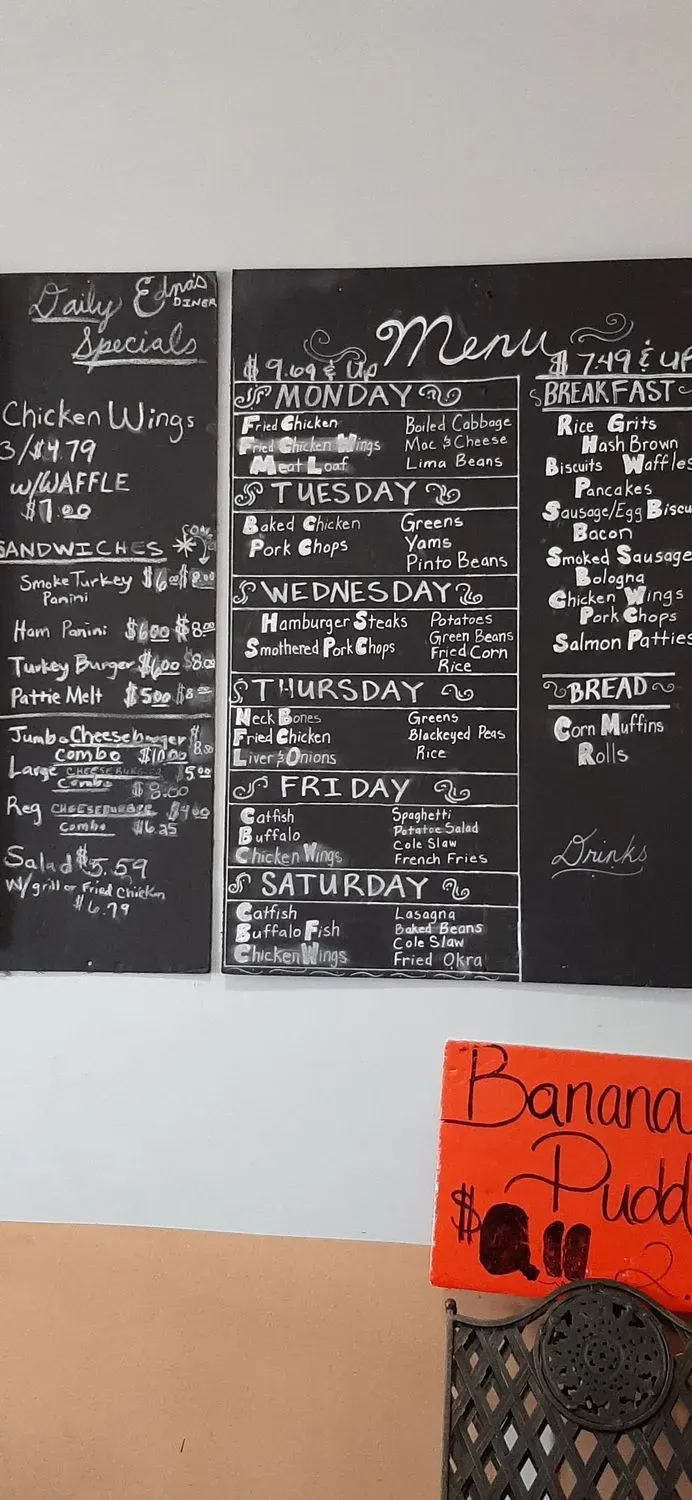 Daily Edna's
DINER
Specials
Chicken Wings
3/$4.79
w/WAFFLE
$7.00
SANDWICHES
Smoke Turkey $6.00 $8.00
Panini
Ham Panini $6.00 $8.00
Turkey Burger $6.00 $8.00
Pattie Melt $5.00 $8.00
Jumbo Cheeseburger $8.00
Combo $10.00
Large CHEESEBURGER $5.00
Combo $8.00
Reg CHEESEBURGER $4.00
Combo $6.25
Salad $5.59
W/grill or Fried Chicken
$6.79
Menu
$9.69 & Up
MONDAY
Fried Chicken Boiled Cabbage
Fried Chicken Wings Mac & Cheese
Meat Loaf Lima Beans
TUESDAY
Baked Chicken Greens
Pork Chops Yams
Pinto Beans
WEDNESDAY
Hamburger Steaks Potatoes
Smothered Pork Chops Green Beans
Fried Corn
Rice
THURSDAY
Neck Bones Greens
Fried Chicken Blackeyed Peas
Liver & Onions Rice
FRIDAY
Catfish Spaghetti
Buffalo Potatoe Salad
Chicken Wings Cole Slaw
French Fries
SATURDAY
Catfish Lasagna
Buffalo Fish Baked Beans
Chicken Wings Cole Slaw
Fried Okra
$7.49 & UP
BREAKFAST
Rice Grits
Hash Brown
Biscuits Waffles
Pancakes
Sausage/Egg Biscu
Bacon
Smoked Sausage
Bologna
Chicken Wings
Pork Chops
Salmon Patties
BREAD
Corn Muffins
Rolls
Drinks
Banana
Pudd
$